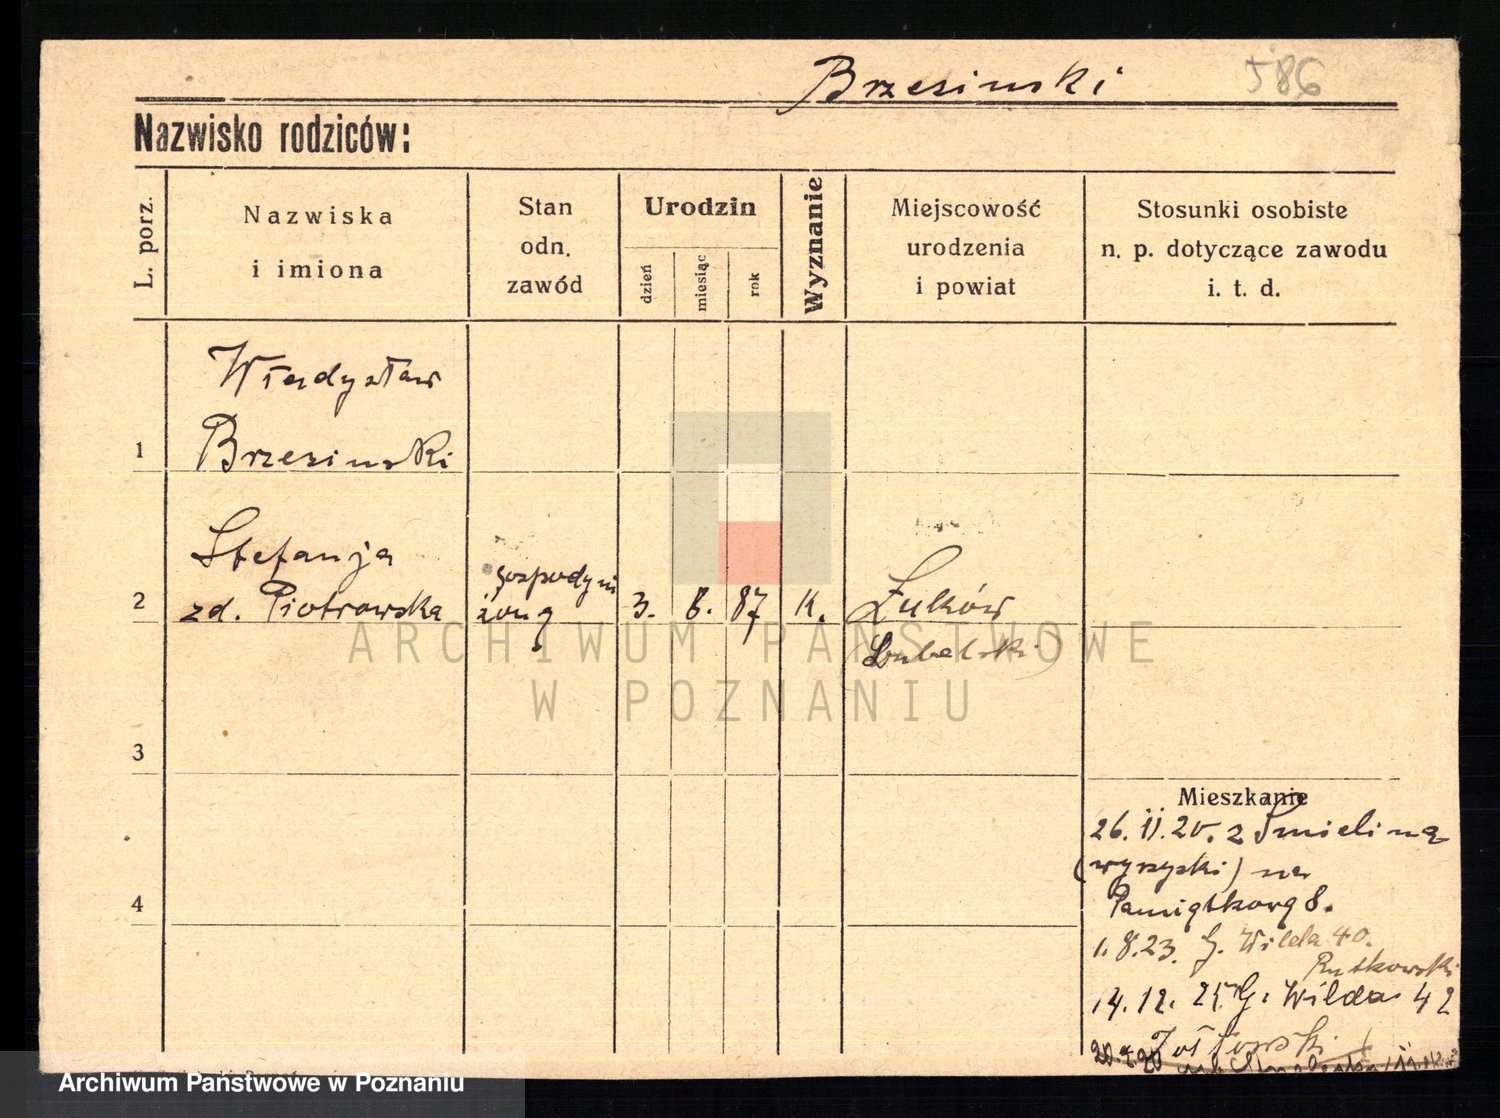 Brzesinski 586
Nazwisko rodziców:
L. porz.
Nazwiska
i imiona
Stan
odn.
zawód
Urodzin
dzień
miesiąc
rok
Wyznanie
Miejscowość
urodzenia
i powiat
Stosunki osobiste
n. p. dotyczące zawodu
i. t. d.
Władysław
1 Brzesinski
Stefanja
2 zd. Piotrowska
gospodyni
żona
3. 6. 87 K. Łuków
(Lubelski)
ARCHIWUM PAŃSTWOWE
W POZNANIU
3
4
Mieszkanie
26. II. 20. z Śmielina
(wyrzyski) na
Pamiątkową 8.
1. 8. 23. G. Wilda 40.
Rutkowski
14. 12. 25 G. Wilda 42
Archiwum Państwowe w Poznaniu